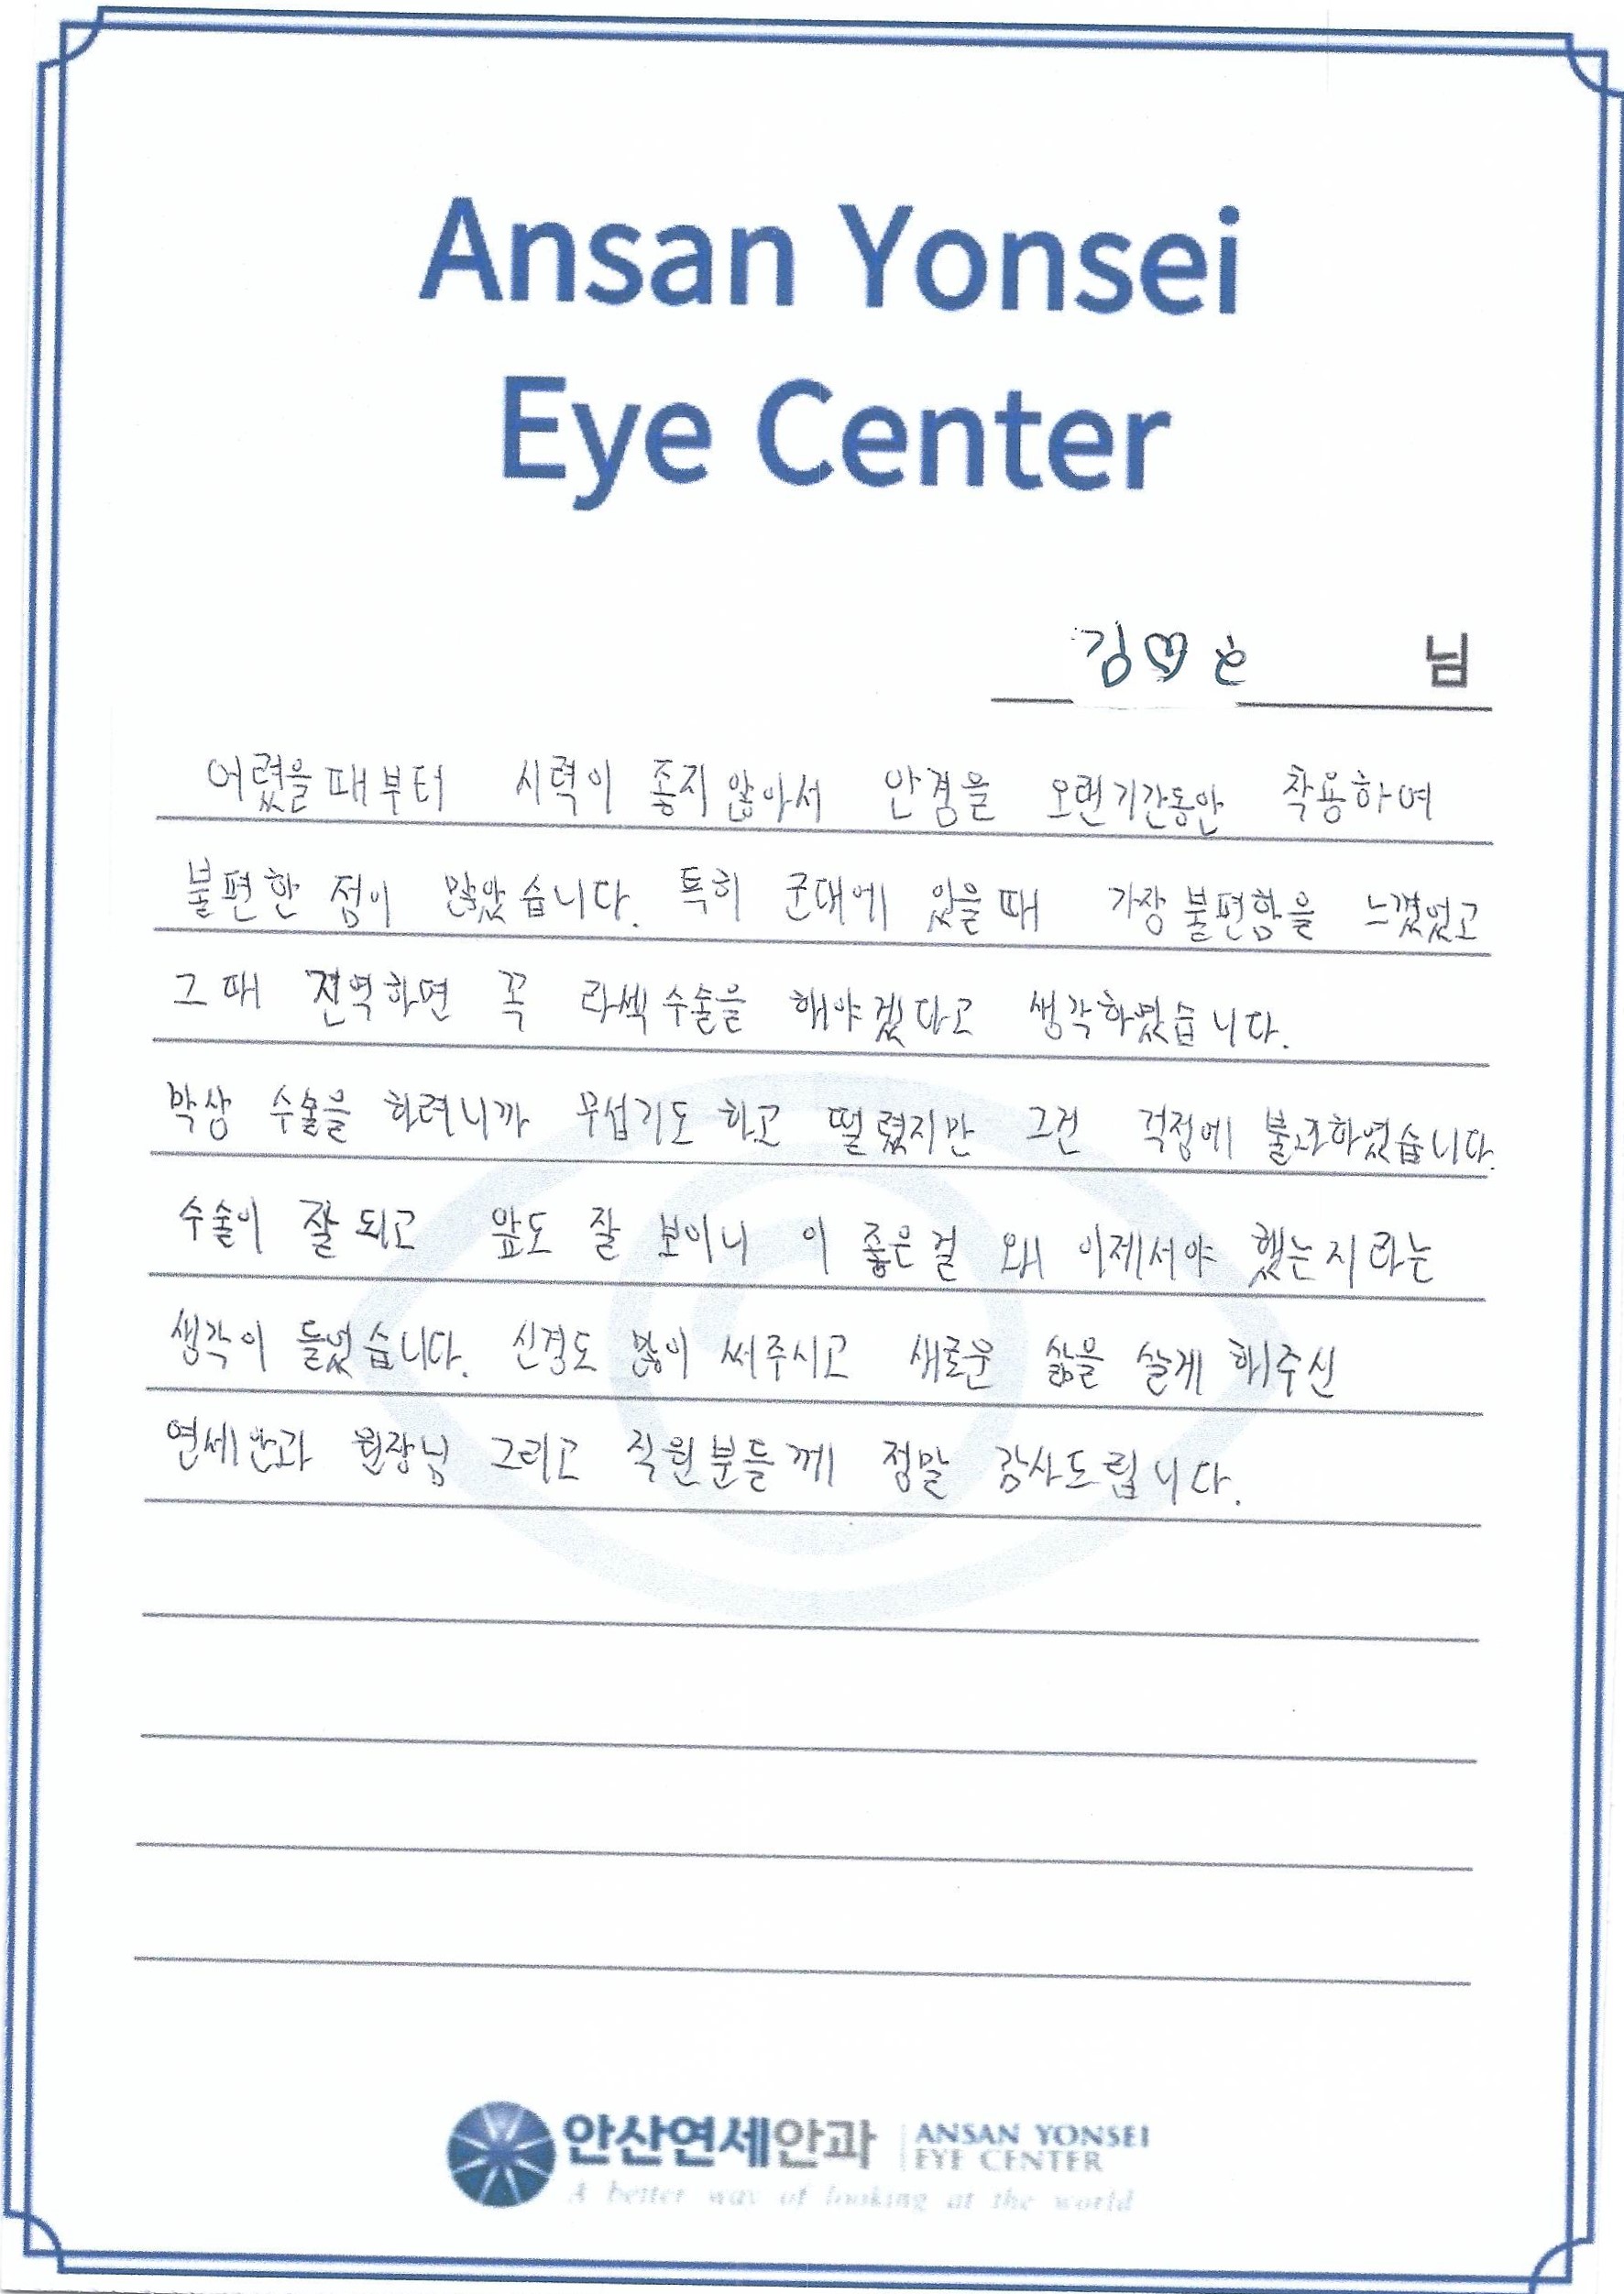 Ansan Yonsei
Eye Center
김♡흔 님
어렸을때부터 시력이 좋지 않아서 안경을 오랜기간동안 착용하여
불편한 점이 많았습니다. 특히 군대에 있을때 가장 불편함을 느꼈었고
그때 전역하면 꼭 라섹수술을 해야겠다고 생각하였습니다.
막상 수술을 하려니까 무섭기도 하고 떨렸지만 그건 걱정에 불과하였습니다.
수술이 잘 되고 앞도 잘 보이니 이 좋은걸 왜 이제서야 했는지라는
생각이 들었습니다. 신경도 많이 써주시고 새로운 삶을 살게 해주신
연세안과 원장님 그리고 직원분들께 정말 감사드립니다.
안산연세안과 ANSAN YONSEI
EYE CENTER
A better way of looking at the world